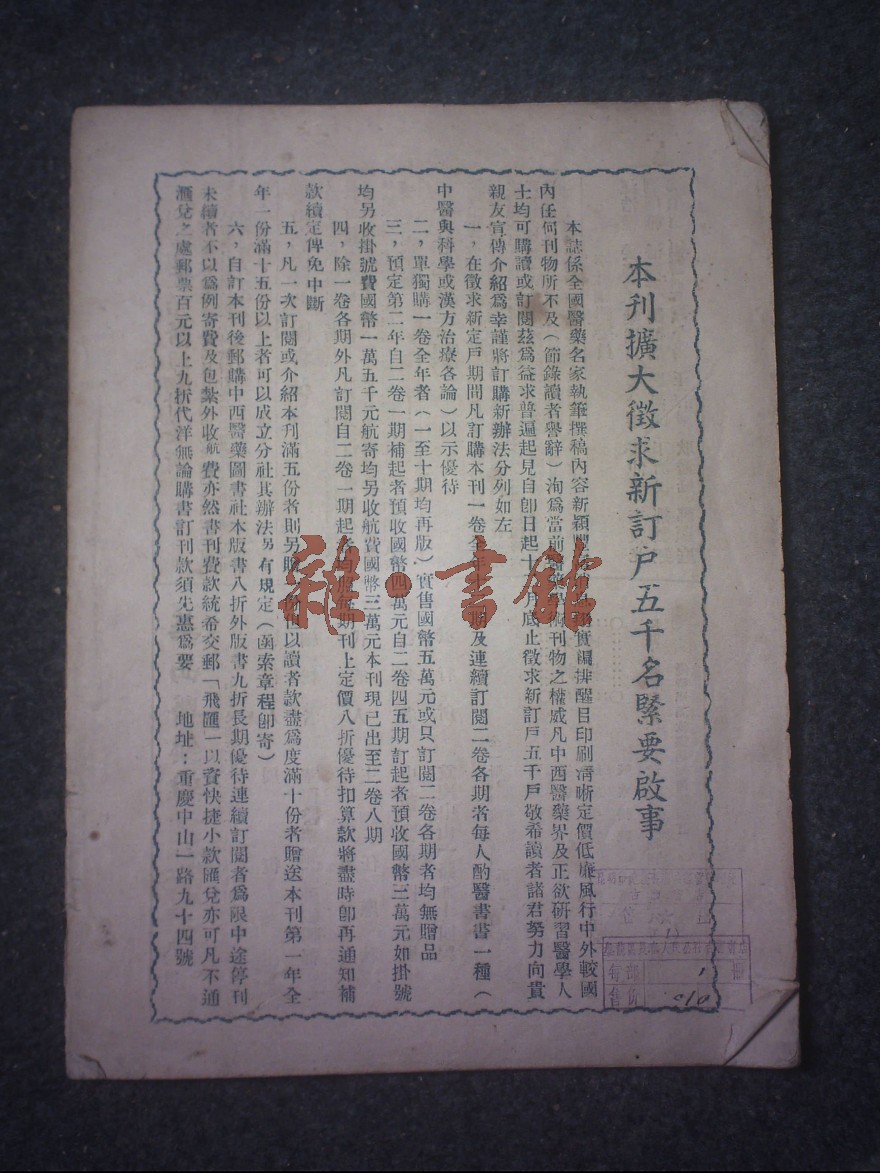 本刊擴大徵求新訂戶五千名緊要啟事
本誌係全國醫藥名家執筆撰稿內容新穎 實編排醒目印刷清晰定價低廉風行中外較國
內任何刊物所不及（節錄讀者譽辭）洵爲當前 術刊物之權威凡中西醫藥界及正欲研習醫學人
士均可購讀或訂閱茲爲益求普遍起見自卽日起十 月底止徵求新訂戶五千戶敬希讀者諸君努力向貴
親友宣傳介紹爲幸謹將訂購新辦法分列如左
一，在徵求新定戶期間凡訂購本刊一卷全年 及連續訂閱二卷各期者每人酌醫書書一種（
中醫與科學或漢方治療各論）以示優待
二，單獨購一卷全年者（一至十期均再版）實售國幣五萬元或只訂閱二卷各期者均無贈品
三，預定第二年自二卷一期補起者預收國幣四萬元自二卷四五期訂起者預收國幣三萬元如掛號
均另收掛號費國幣一萬五千元航寄均另收航費國幣三萬元本刊現已出至二卷八期
四，除一卷各期外凡訂閱自二卷一期起 均照每期刊上定價八折優待扣算款將盡時卽再通知補
款續定俾免中斷
五，凡一次訂閱或介紹本刊滿五份者則另贈 份 以讀者款盡爲度滿十份者贈送本刊第一年全
年一份滿十五份以上者可以成立分社其辦法另有規定（函索章程卽寄）
六，自訂本刊後郵購中西醫藥圖書社本版書八折外版書九折長期優待連續訂閱者爲限中途停刊
未續者不以爲例寄費及包紮外收航費亦然書刊費款統希交郵「飛匯」以資快捷小款匯兌亦可凡不通
滙兌之處郵票百元以上九折代洋無論購書訂刊款須先惠爲要 地址：重慶中山一路九十四號
雜·書館
每部
1
冊
售價
010